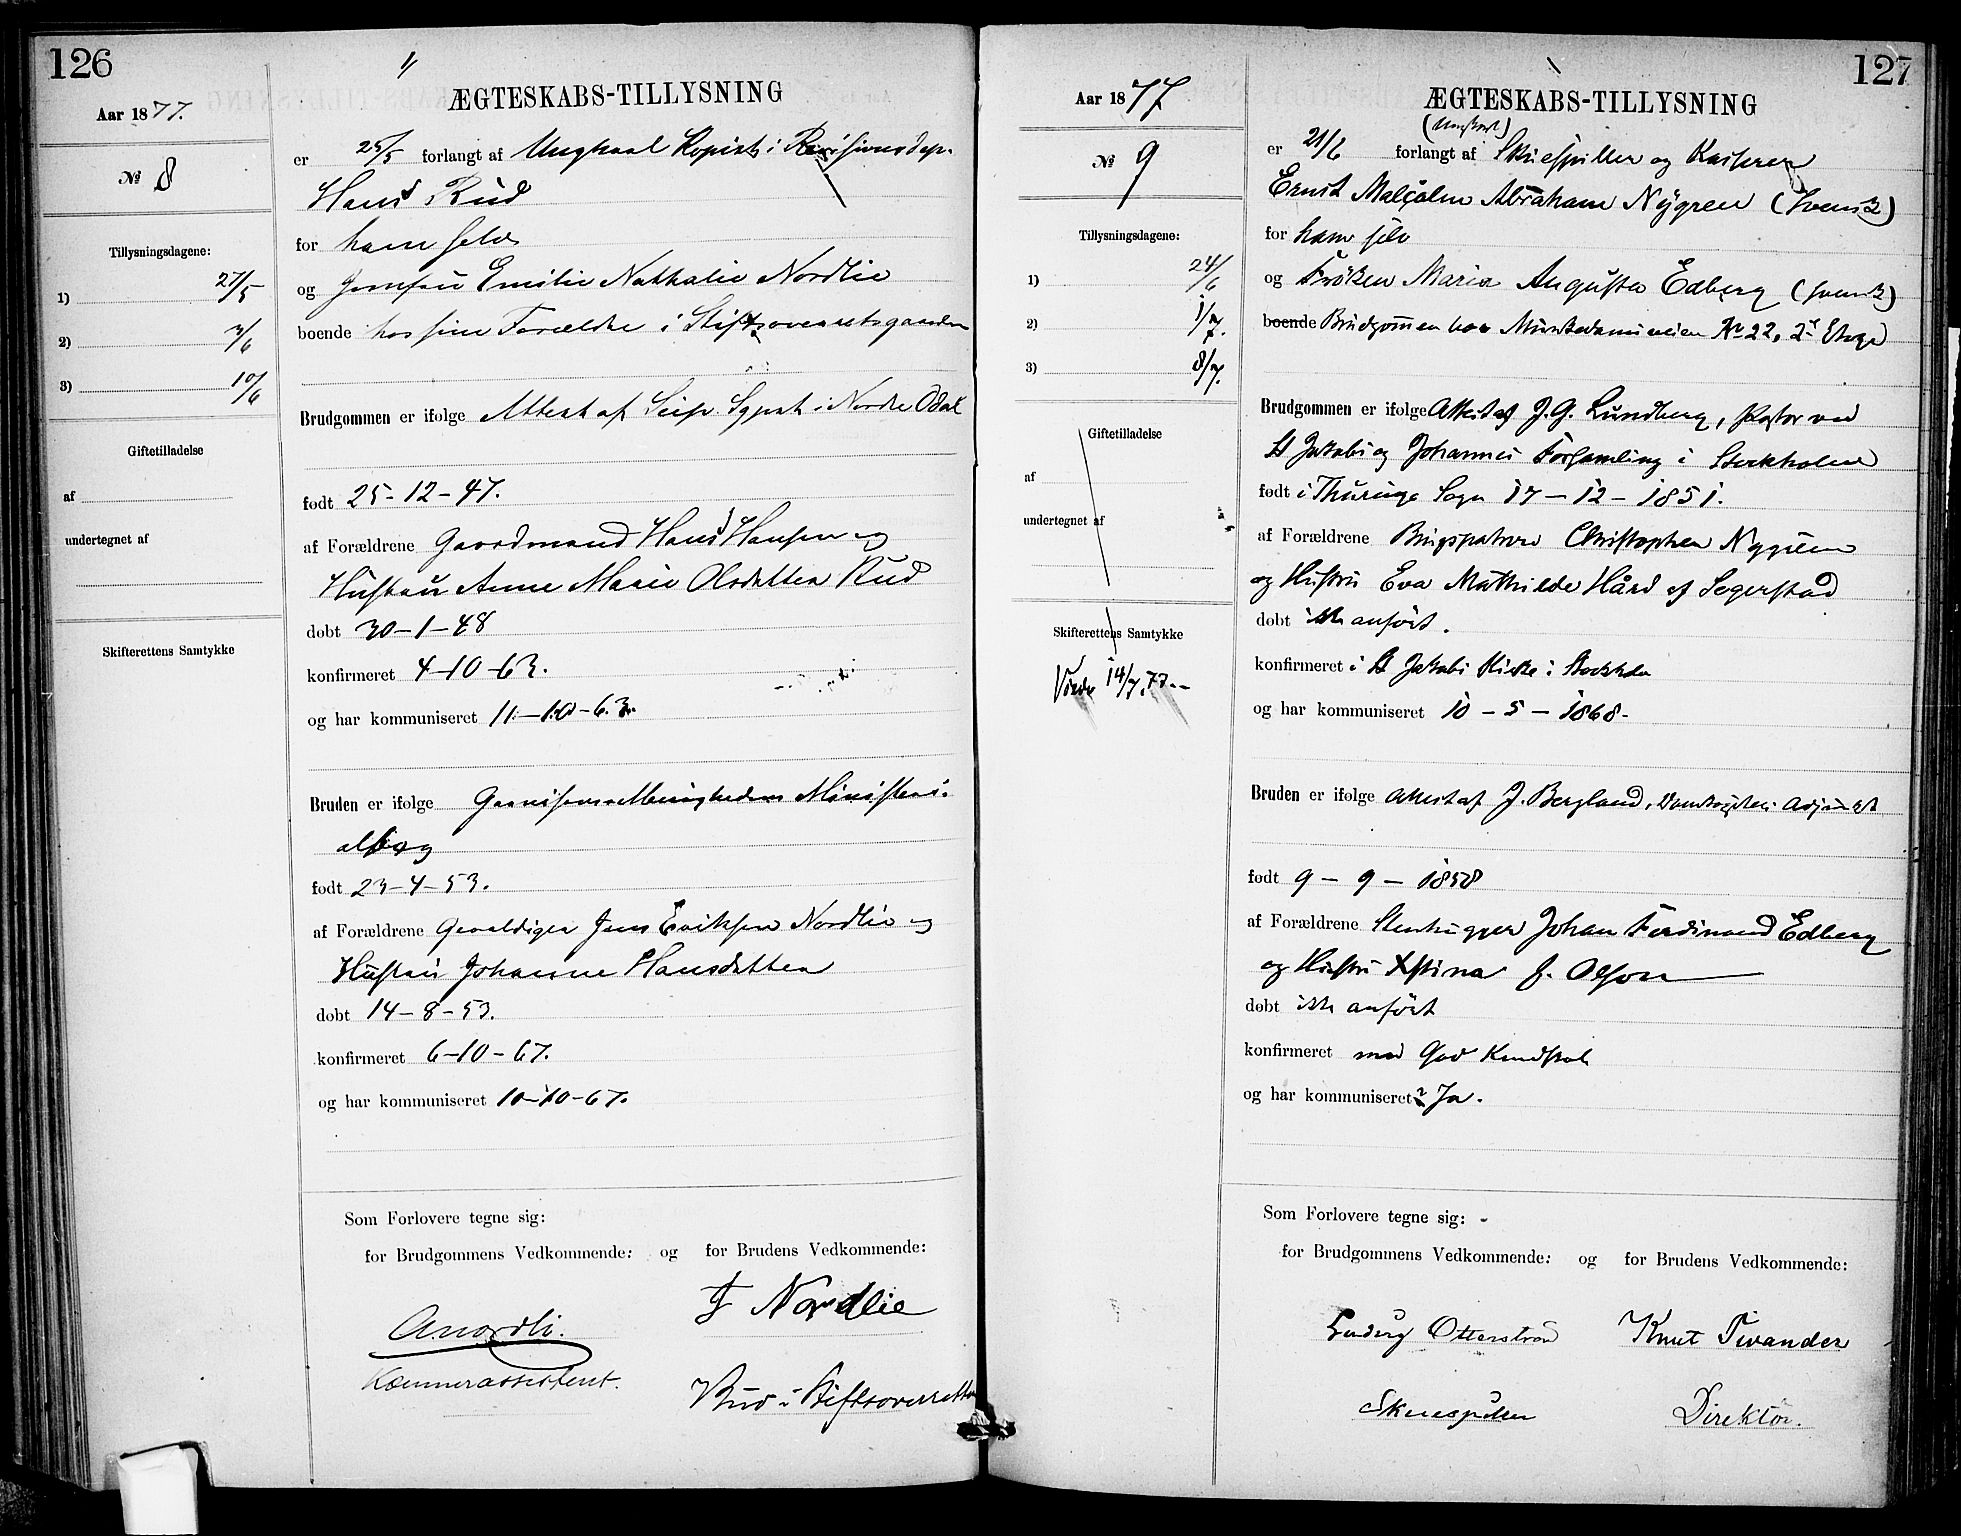 126
"
Aar 1877.
ÆGTESKABS-TILLYSNING
№ 8
er 25/5 forlangt af Ungkarl Kopist i Revisionsdep.
Hans Rud
for ham selv
og Jomfru Emilie Nathalie Nordlie
boende hos sine Forældre i Stiftsoverretsgaarden
Tillysningsdagene:
1) 27/5
2) 3/6
3) 10/6
Giftetilladelse
af
undertegnet af
Skifterettens Samtykke
Brudgommen er ifølge Attest af i Nordre Odal
født 25-12-47.
af Forældrene Gaardmand Hans Hansen og
Hustru Anne Marie Olsdatter Rud
døbt 30-1-48
konfirmeret 4-10-63.
og har kommuniseret 11-10-63.
Bruden er ifølge Garnisonsmenighedens Ministeri-
albog
født 23-4-53.
af Forældrene Gevaldiger Jens Eriksen Nordlie og
Hustru Johanne Hansdatter
døbt 14-8-53.
konfirmeret 6-10-67.
og har kommuniseret 10-10-67.
Som Forlovere tegne sig:
for Brudgommens Vedkommende: og for Brudens Vedkommende:
A Nordli.
Kæmnerassistent.
J Nordlie
Bud i Stiftsoverretten
127
Aar 1877
ÆGTESKABS-TILLYSNING
№ 9
(Ungkarl)
er 21/6 forlangt af Skuespiller og Kasserer
Ernst Malcolm Abraham Nygren (svensk)
for ham selv
og Frøken Maria Augusta Edberg (svensk)
boende Brudgommen bor Munkedamsveien No 22, 2d Etage
Tillysningsdagene:
1) 24/6
2) 1/7.
3) 8/7.
Giftetilladelse
af
undertegnet af
Skifterettens Samtykke
Viede 14/7.77.
Brudgommen er ifølge Attest af J. G. Lundberg, Pastor ved
St Jakobs og Johannes Forsamling i Stockholm
født i Thuringe Sogn 17-12-1851.
af Forældrene Brugspatron Christopher Nygren
og Hustru Eva Mathilde Hård af Segerstad
døbt ikke anført.
konfirmeret i St Jakobs Kirke i Stockholm
og har kommuniseret 10-5-1868.
Bruden er ifølge Attest af J. Bergland, Domkyrko-Adjunkt
født 9-9-1858
af Forældrene Stenhugger Johan Ferdinand Edberg
og Hustru Xstina J. Olson
døbt ikke anført
konfirmeret med god Kundskab
og har kommuniseret? Ja.
Som Forlovere tegne sig:
for Brudgommens Vedkommende: og for Brudens Vedkommende:
Ludvig Otterström
Skuespiller
Knut Tivander
Direktör.